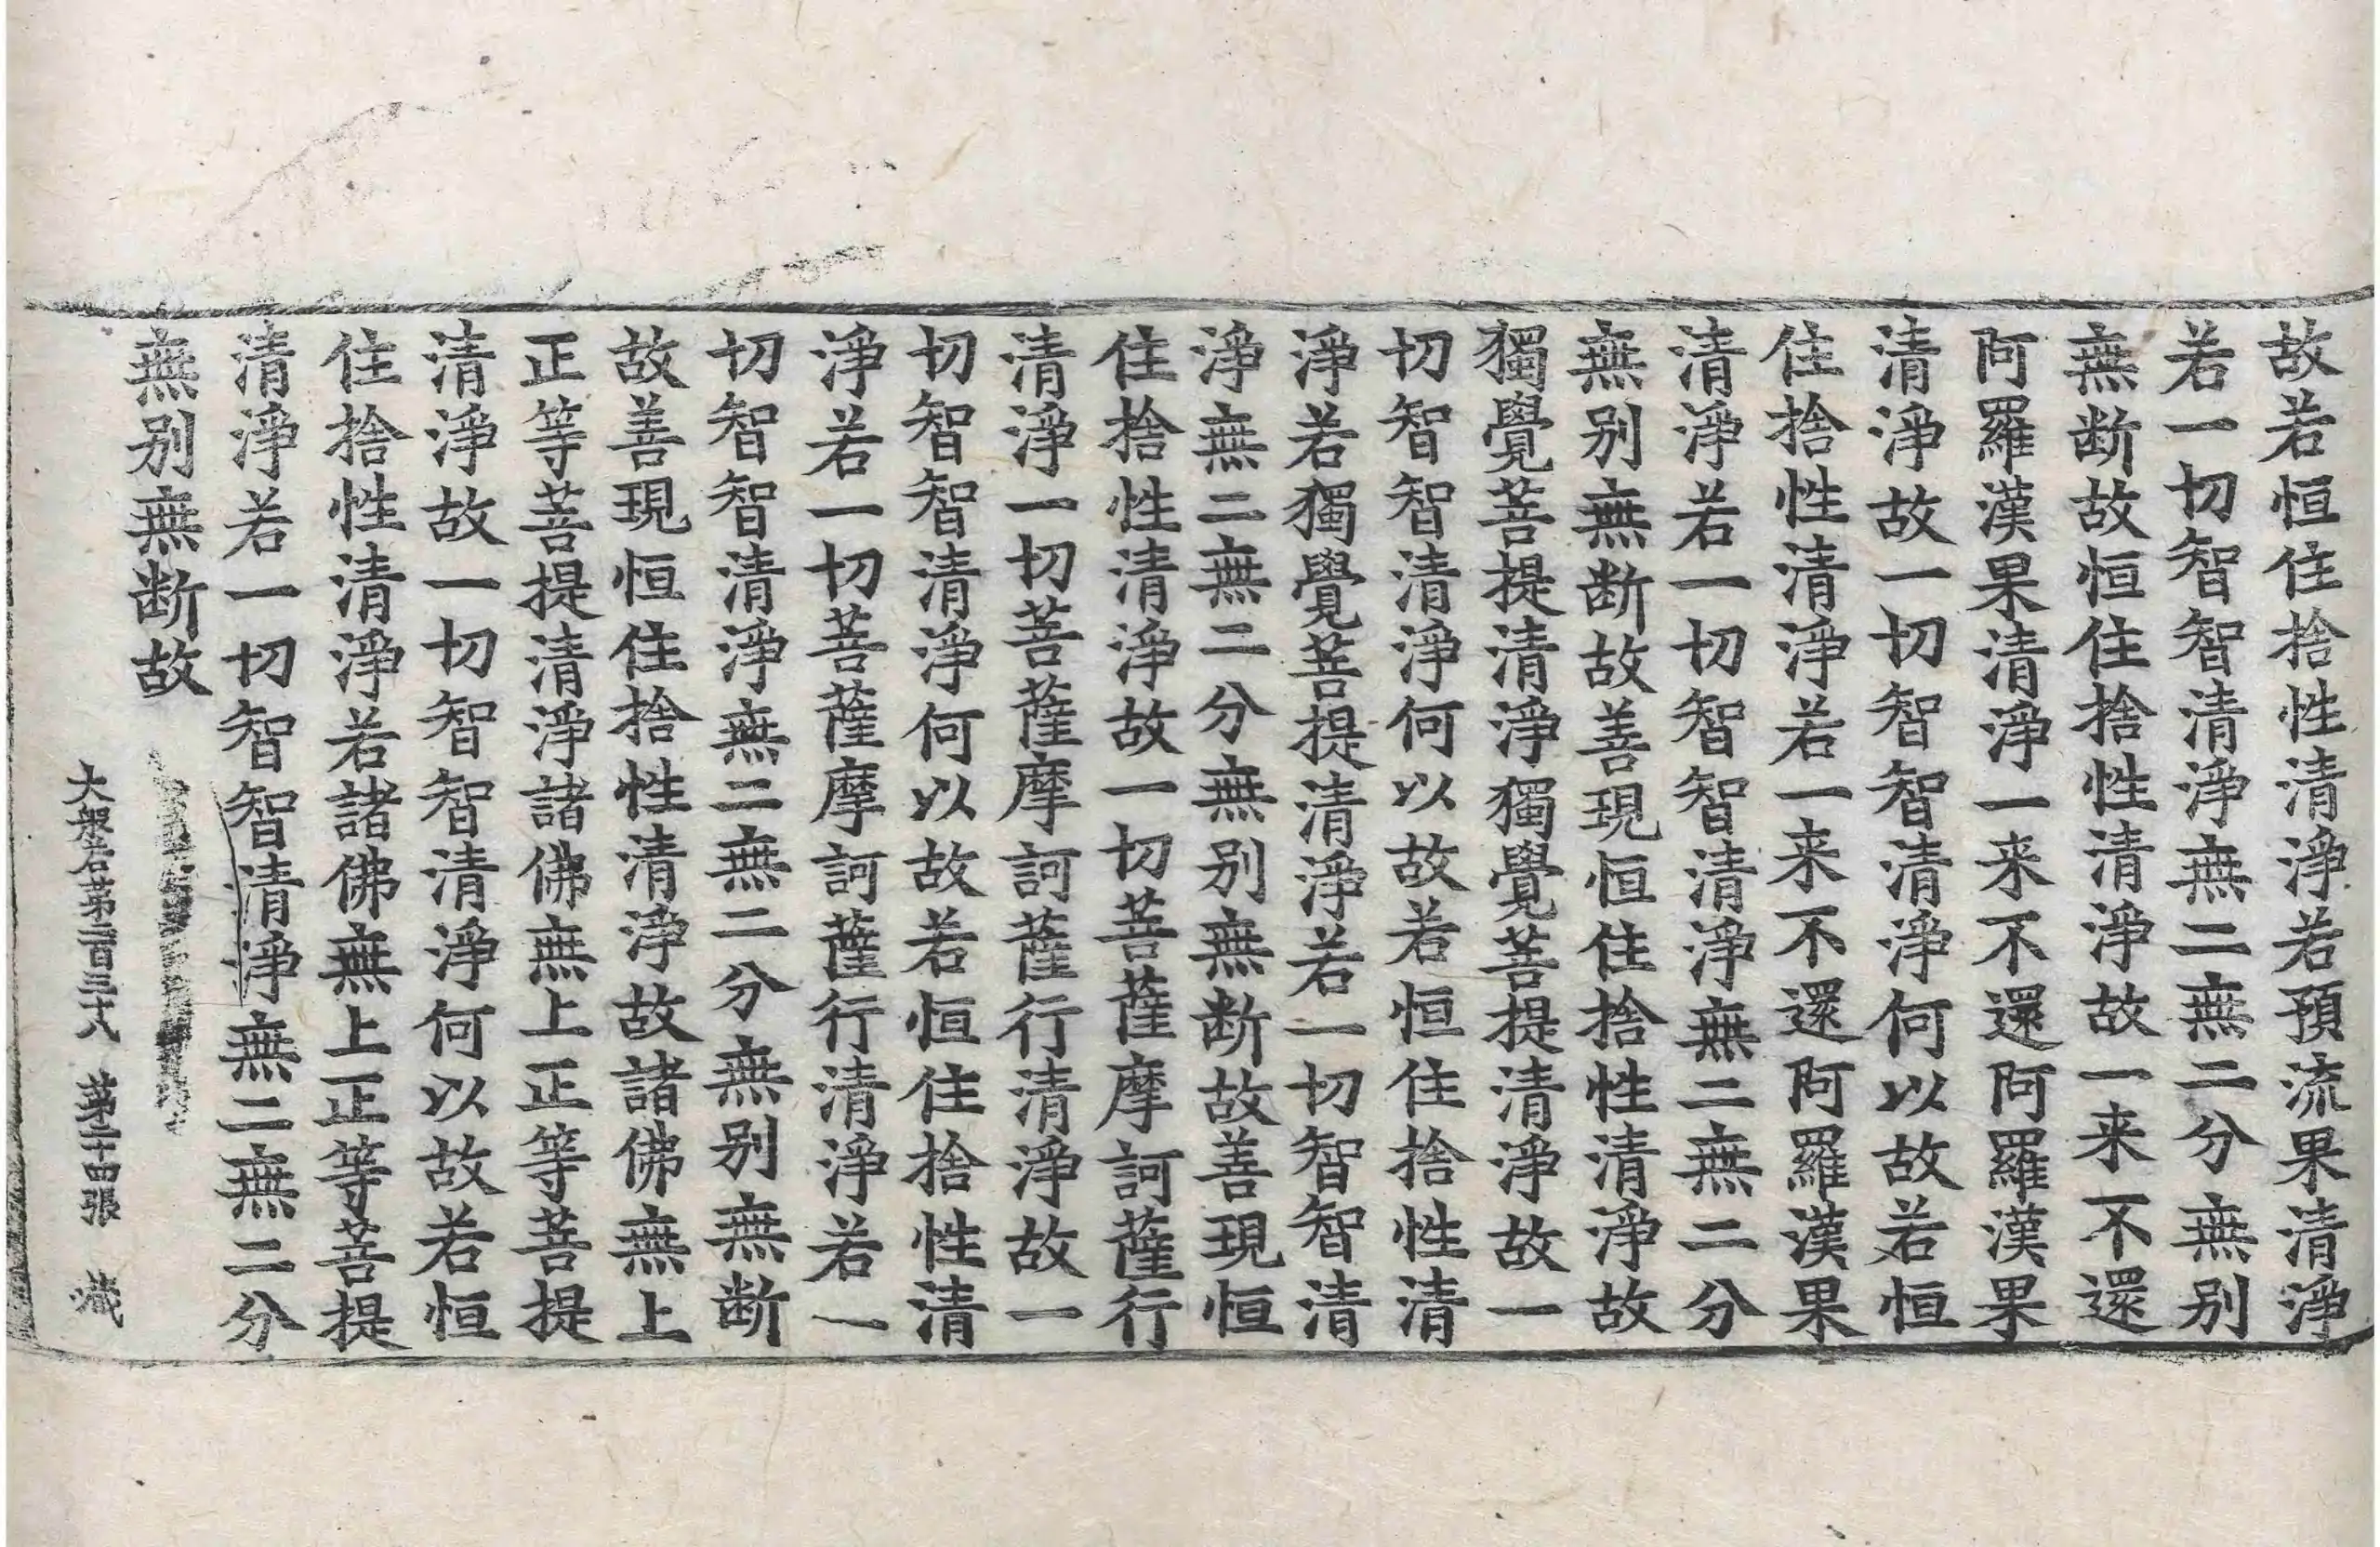 故若恒住捨性清淨若預流果清淨
若一切智智清淨無二無二分無別
無断故恒住捨性清淨故一来不還
阿羅漢果清淨一来不還阿羅漢果
清淨故一切智智清淨何以故若恒
住捨性清淨若一来不還阿羅漢果
清淨若一切智智清淨無二無二分
無別無断故善現恒住捨性清淨故
獨覺菩提清淨獨覺菩提清淨故一
切智智清淨何以故若恒住捨性清
淨若獨覺菩提清淨若一切智智清
淨無二無二分無別無断故善現恒
住捨性清淨故一切菩薩摩訶薩行
清淨一切菩薩摩訶薩行清淨故一
切智智清淨何以故若恒住捨性清
淨若一切菩薩摩訶薩行清淨若一
切智智清淨無二無二分無別無断
故善現恒住捨性清淨故諸佛無上
正等菩提清淨諸佛無上正等菩提
清淨故一切智智清淨何以故若恒
住捨性清淨若諸佛無上正等菩提
清淨若一切智智清淨無二無二分
無別無断故
大般若第二百三十八 第二十四張